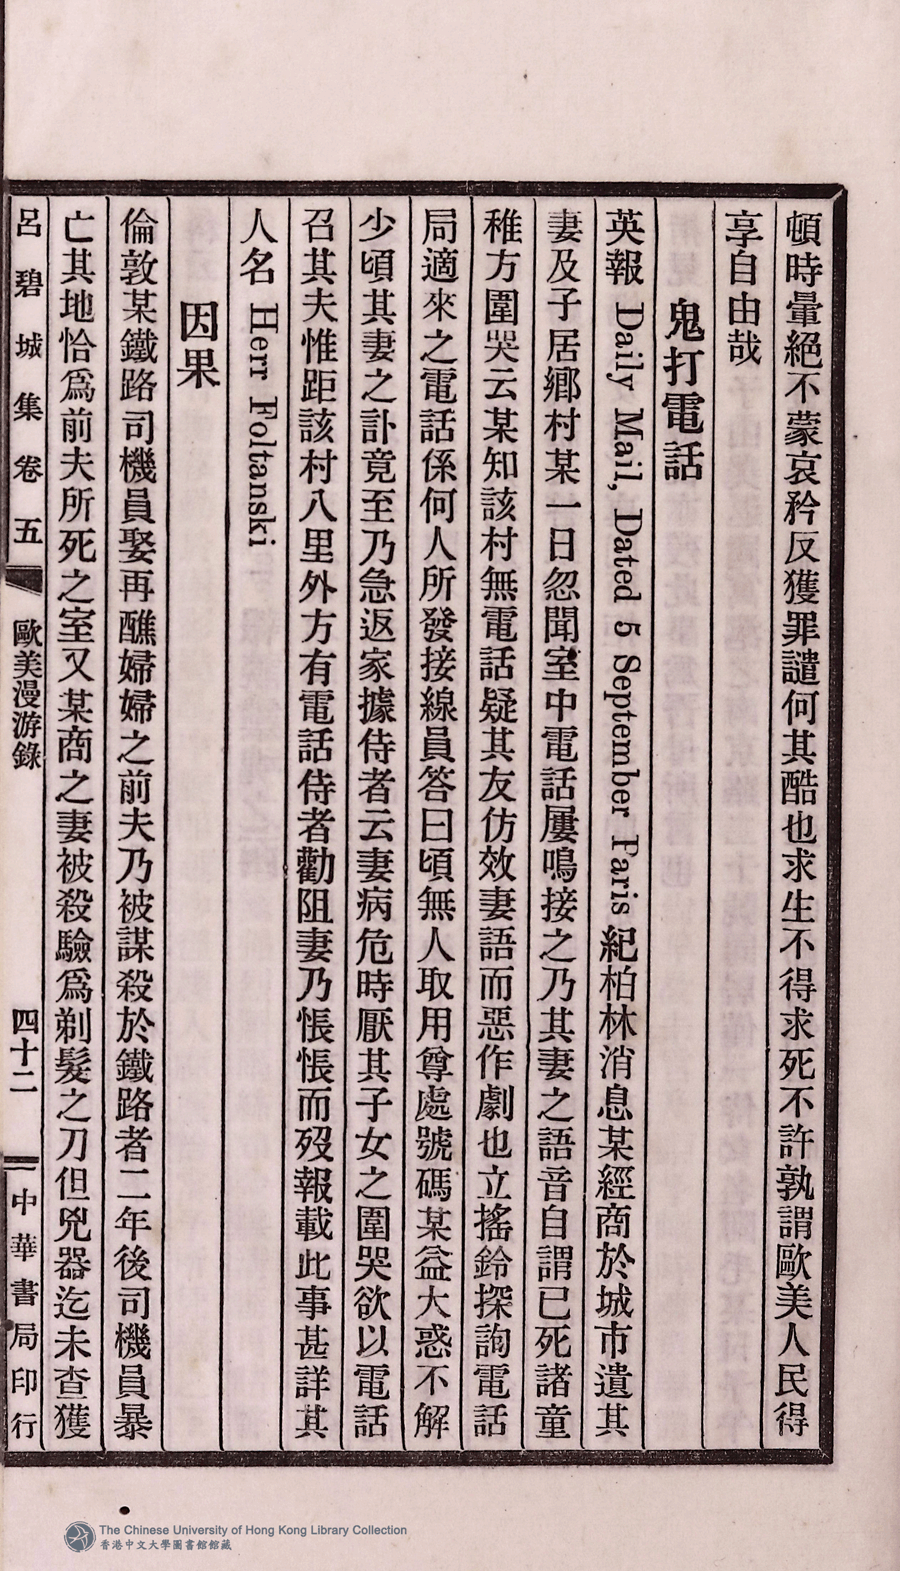 頓時暈絕不蒙哀矜反獲罪譴何其酷也求生不得求死不許孰謂歐美人民得
享自由哉
鬼打電話
英報 Daily Mail, Dated 5 September Paris 紀柏林消息某經商於城市遺其
妻及子居鄉村某一日忽聞室中電話屢鳴接之乃其妻之語音自謂已死諸童
稚方圍哭云某知該村無電話疑其友仿效妻語而惡作劇也立搖鈴探詢電話
局適來之電話係何人所發接線員答曰頃無人取用尊處號碼某益大惑不解
少頃其妻之訃竟至乃急返家據侍者云妻病危時厭其子女之圍哭欲以電話
召其夫惟距該村八里外方有電話侍者勸阻妻乃悵悵而歿報載此事甚詳其
人名 Herr Foltanski
因果
倫敦某鐵路司機員娶再醮婦婦之前夫乃被謀殺於鐵路者二年後司機員暴
亡其地恰爲前夫所死之室又某商之妻被殺驗爲剃髮之刀但兇器迄未查獲
呂碧城集卷五 歐美漫游錄 四十二 中華書局印行
The Chinese University of Hong Kong Library Collection
香港中文大學圖書館館藏